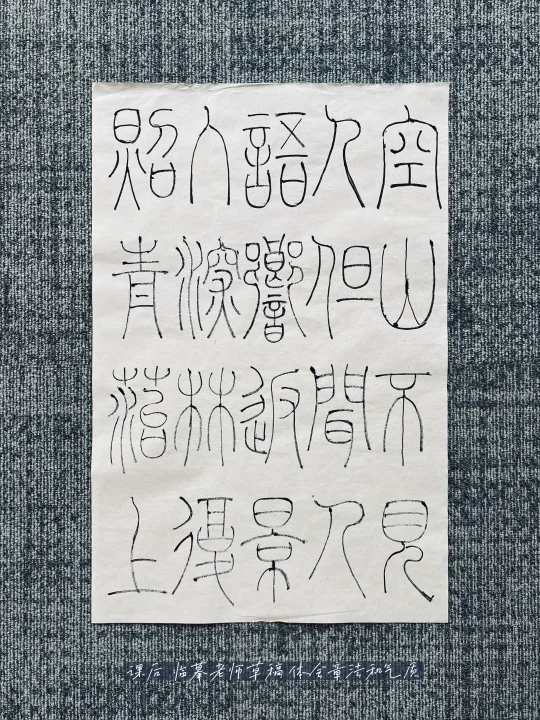 空山不見
人但聞人
語響返景
入深林復
照青菭上
课后 临摹老师草稿 体会章法和气质